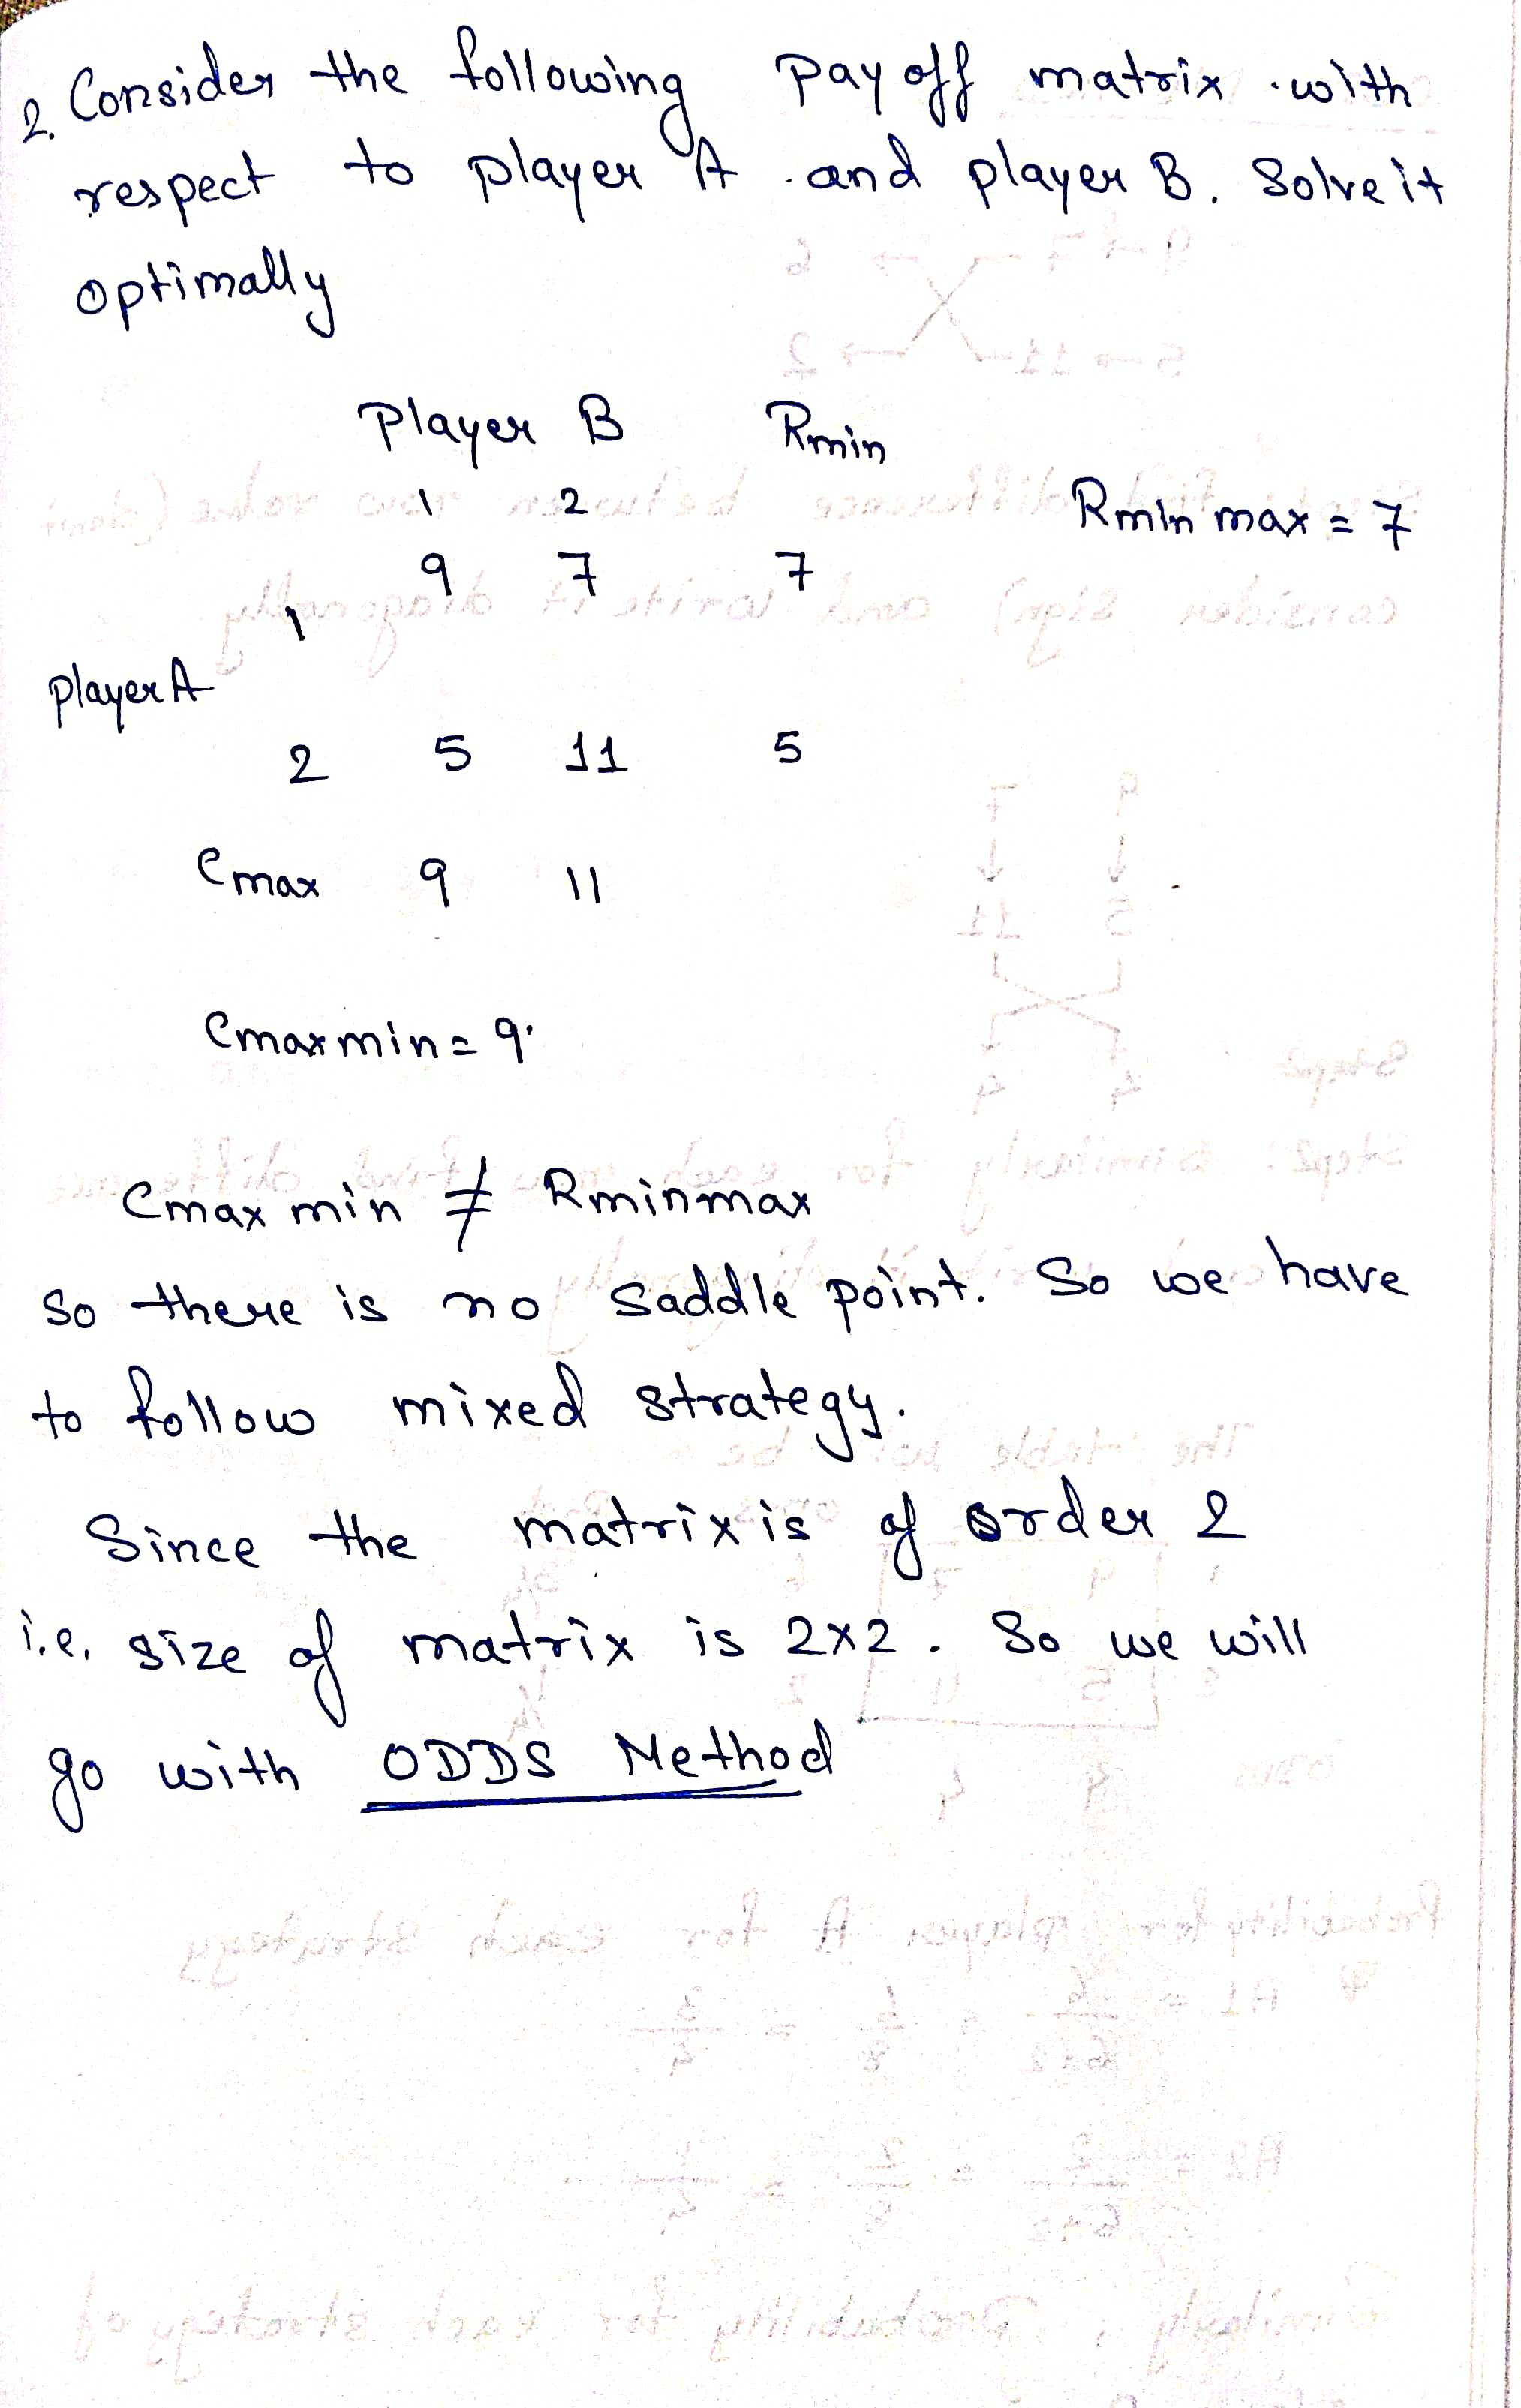 2. Consider the following pay off matrix with
respect to player A and player B. Solve it
optimally
Player B Rmin
1 2 Rmin max = 7
9 7 7
1
player A
2 5 11 5
Cmax 9 11
Cmaxmin = 9
Cmax min ≠ Rminmax
so there is no saddle point. So we have
to follow mixed strategy.
Since the matrix is of order 2
i.e. size of matrix is 2x2. So we will
go with ODDS Method